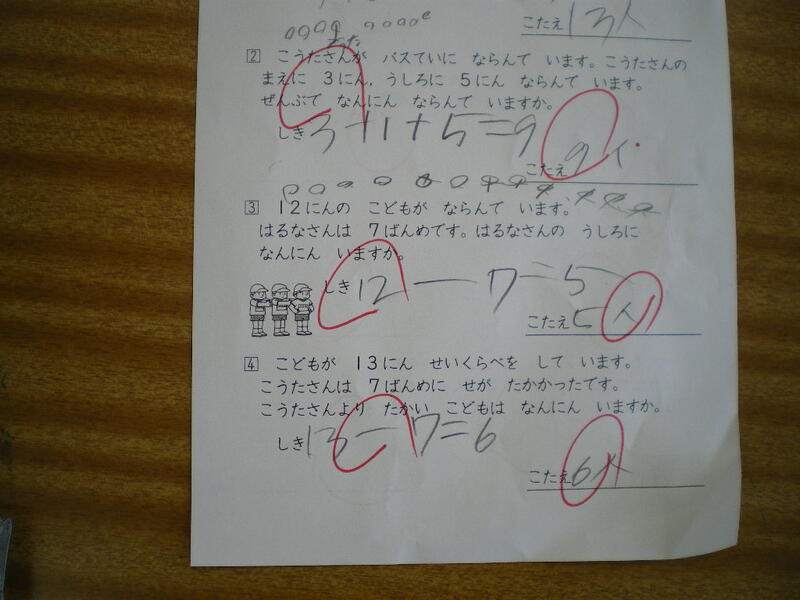 こたえ 13人
2 こうたさんが バスていに ならんで います。こうたさんの
まえに 3にん, うしろに 5にん ならんで います。
ぜんぶで なんにん ならんで いますか。
しき 3+1+5=9
こたえ 9人
3 12にんの こどもが ならんで います。
はるなさんは 7ばんめです。はるなさんの うしろに
なんにん いますか。
しき 12-7=5
こたえ 5人
4 こどもが 13にん せいくらべを して います。
こうたさんは 7ばんめに せが たかかったです。
こうたさんより たかい こどもは なんにん いますか。
しき 13-7=6
こたえ 6人